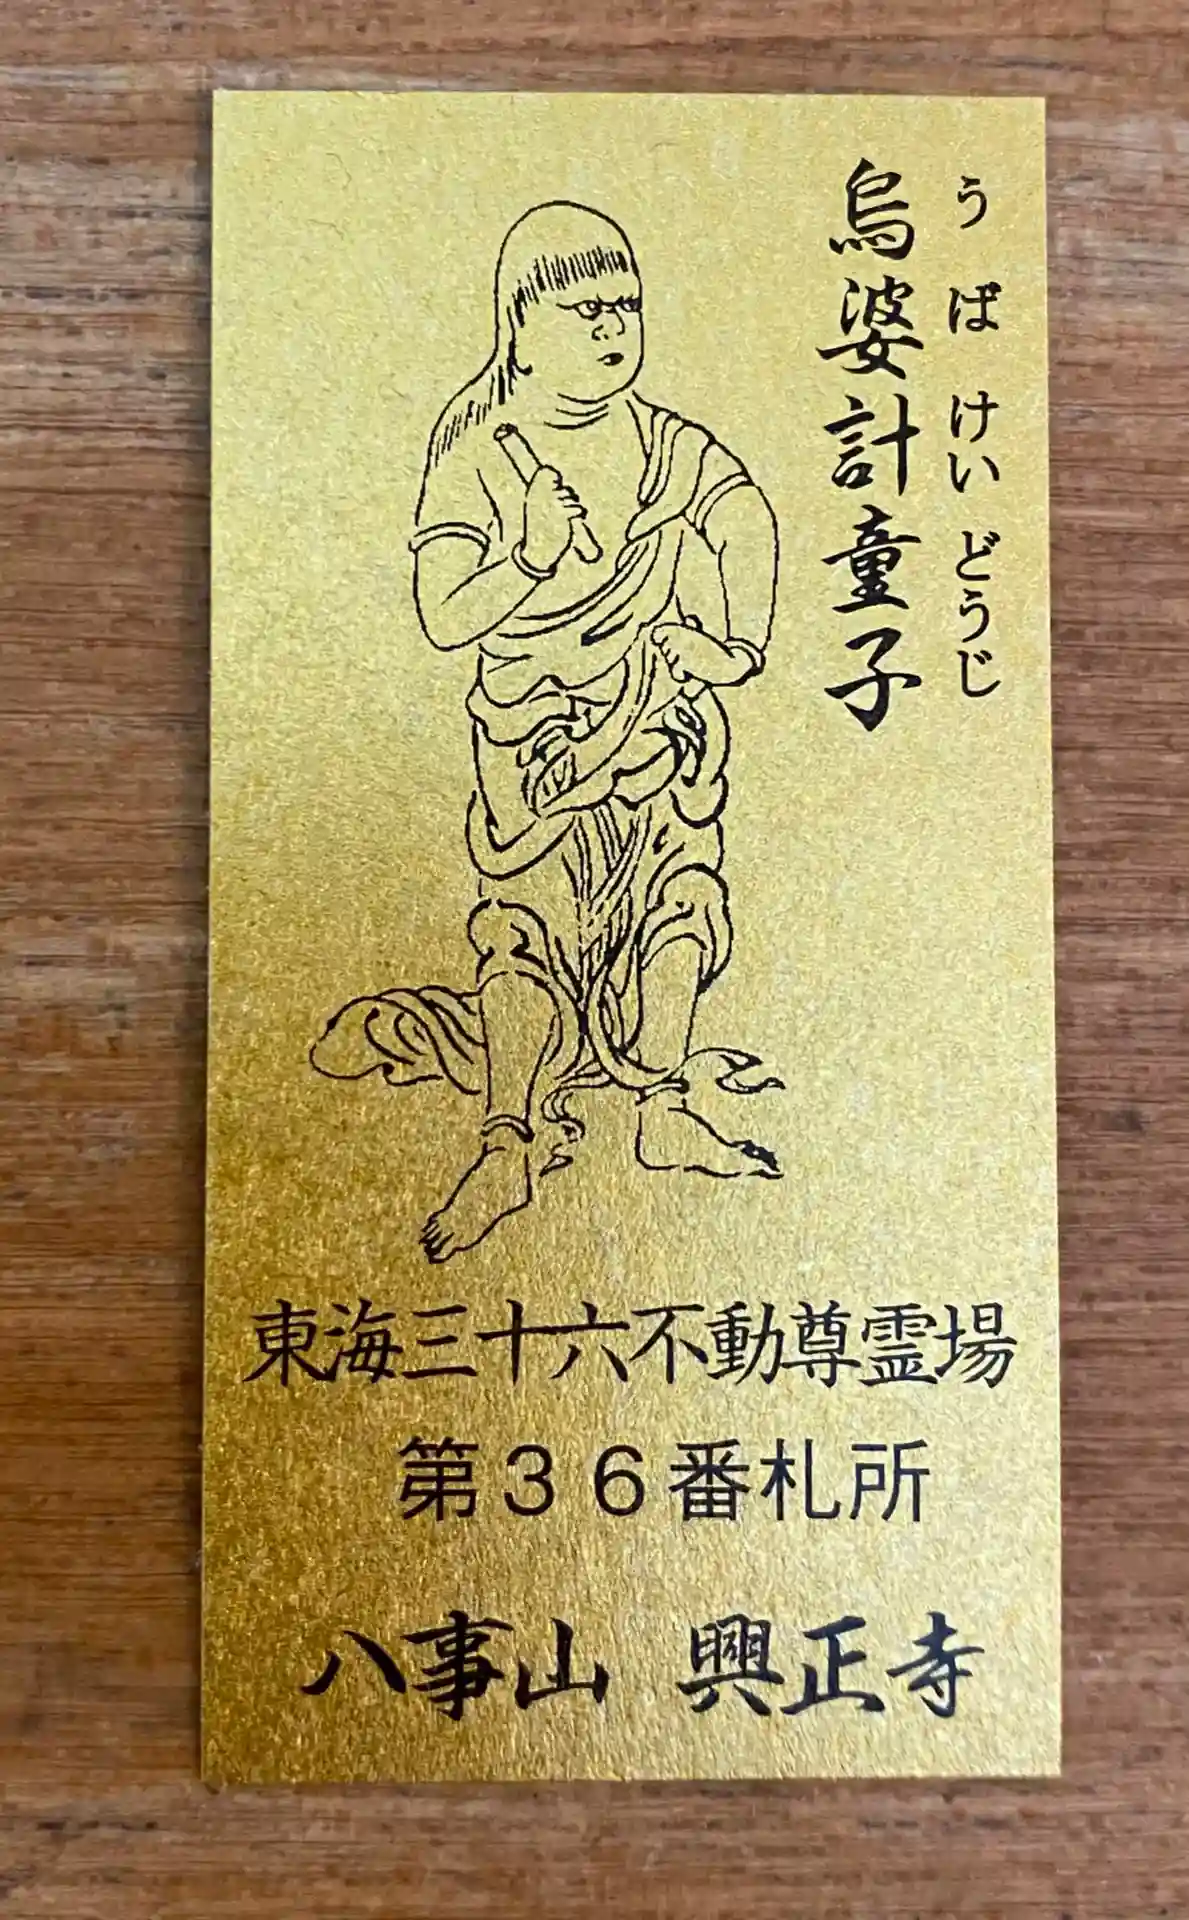 烏婆計童子
うばけいどうじ
東海三十六不動尊霊場
第36番札所
八事山 興正寺